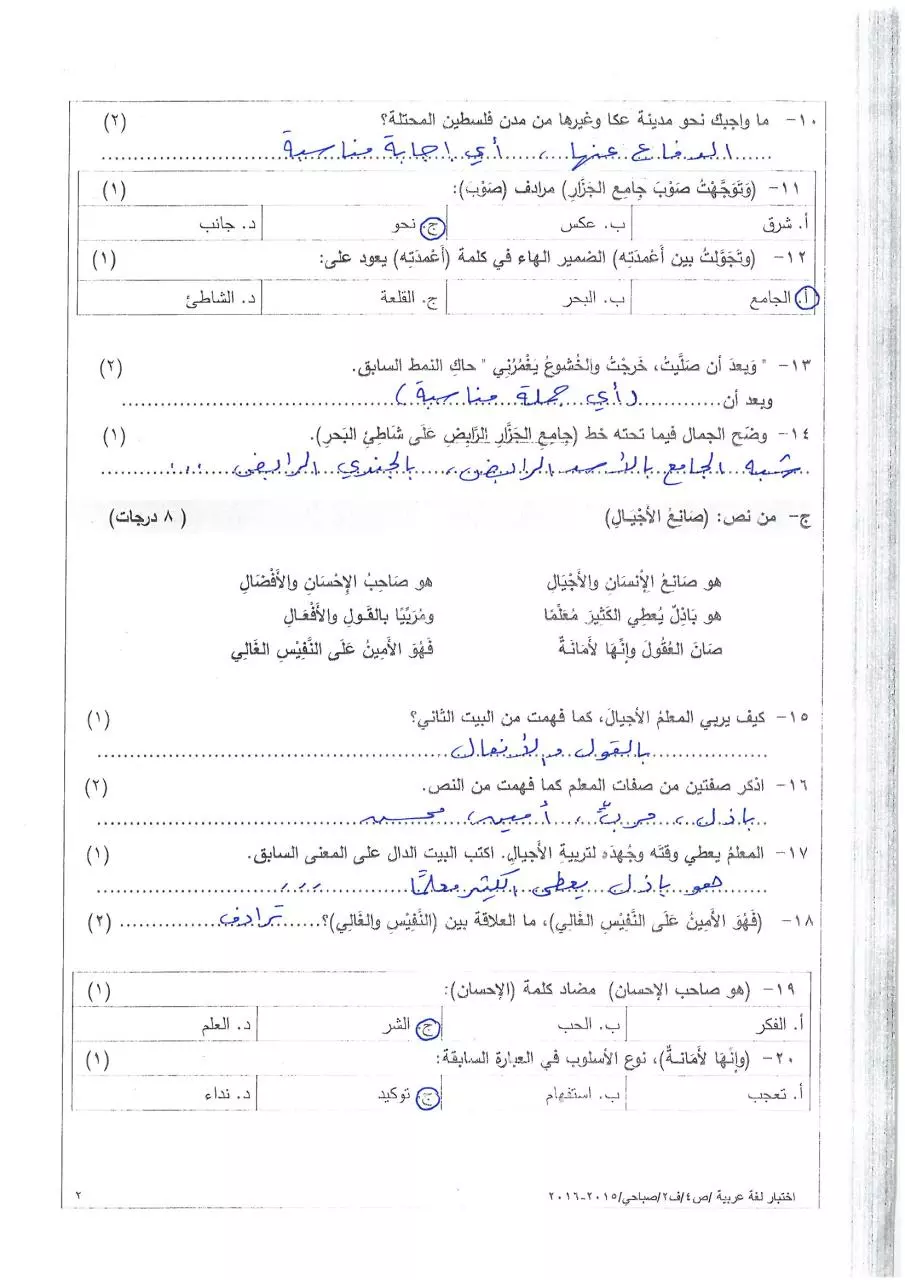 ١٠- ما واجبك نحو مدينة عكا وغيرها من مدن فلسطين المحتلة؟ (٢)
الدفاع عنها ، أي إجابة مناسبة
١١- (وَتَوَجَّهْتُ صَوْبَ جامِعِ الجَزَّارِ) مرادف (صَوْبَ): (١)
أ. شرق ب. عكس ج. نحو د. جانب
١٢- (وتَجَوَّلتُ بين أَعْمدَتِه) الضمير الهاء في كلمة (أَعْمدَتِه) يعود على: (١)
أ. الجامع ب. البحر ج. القلعة د. الشاطئ
١٣- " وَبعدَ أن صَلَّيتُ، خَرجْتُ والخُشوعُ يَغْمُرُنِي " حاكِ النمط السابق. (٢)
وبعد أن (أي جملة مناسبة)
١٤- وضّح الجمال فيما تحته خط (جامِعِ الجَزَّارِ الرَّابِضِ عَلَى شَاطِئِ البَحرِ). (١)
شبه الجامع بالأسد الرابض، بالجندي الرابض ...
ج- من نص: (صَانِعُ الأَجْيَالِ) ( ٨ درجات)
هو صَانِعُ الإِنْسَانِ والأَجْيَالِ هو صَاحِبُ الإِحْسَانِ والأَفْضَالِ
هو بَاذِلٌ يُعطِي الكَثيرَ مُعَلِّمًا ومُرَبِّيًا بالقَولِ والأَفْعَالِ
صَانَ العُقُولَ وإنَّهَا لأَمَانَةٌ فَهُوَ الأَمِينُ عَلَى النَّفِيْسِ الغَالِي
١٥- كيف يربي المعلمُ الأجيالَ، كما فهمت من البيت الثاني؟ (١)
بالقول والأفعال
١٦- اذكر صفتين من صفات المعلم كما فهمت من النص. (٢)
باذل ، مربٍّ ، أمين، محسن
١٧- المعلمُ يعطي وقتَه وجُهدَه لتربيةِ الأجيالِ. اكتب البيت الدال على المعنى السابق. (١)
هو باذل يعطي الكثير معلمًا ...
١٨- (فَهُوَ الأَمِينُ عَلَى النَّفِيْسِ الغَالِي)، ما العلاقة بين (النَّفِيْسِ والغَالِي)؟ ترادف (٢)
١٩- (هو صاحب الإحسان) مضاد كلمة (الإحسان): (١)
أ. الفكر ب. الحب ج. الشر د. العلم
٢٠- (وإنَّهَا لأمَانةٌ)، نوع الأسلوب في العبارة السابقة: (١)
أ. تعجب ب. استفهام ج. توكيد د. نداء
اختبار لغة عربية /ص٤/ف٢/صباحي/٢٠١٥-٢٠١٦ ٢